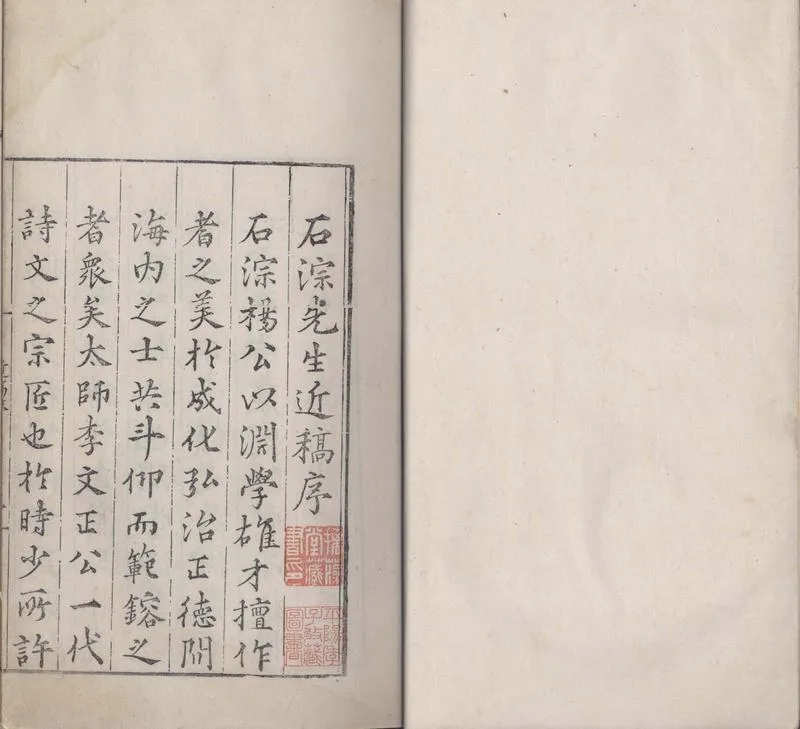 石淙先生近稿序
石淙楊公以淵學雄才擅作
者之美於成化弘治正德間
海內之士共斗仰而範鎔之
者衆矣太師李文正公一代
詩文之宗匠也於時少所許
堂藏
書印
平陽季
子收藏
圖書